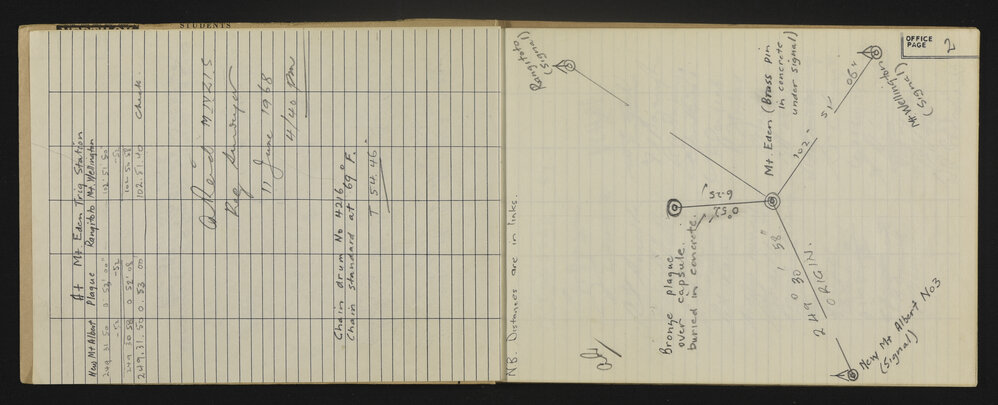 STUDENTS
At Mt. Eden Trig Station
New Mt Albert Plaque Rangitoto Mt. Wellington
249 31 50 0 53' 00" 102° 51' 50"
-52 -52 -52
249 30 58 0 52' 08 102 50 58
249.31.50 0.53 00 102.51.40 check
M.N.Z.I.S.
Reg Surveyor
11 June 1968
4/40 pm
Chain drum No 4216
Chain standard at 69° F.
T. 54.46
OFFICE
PAGE 2
N.B. Distances are in links.
Rangitoto
(Signal)
Mt. Eden (Brass pin
in concrete
under signal)
Mt Wellington
(Signal)
102°
51'
6.25
0° 52'
Bronze plaque
over capsule.
buried in concrete.
249 0 30 ' 58"
ORIGIN.
New Mt Albert No3
(Signal)